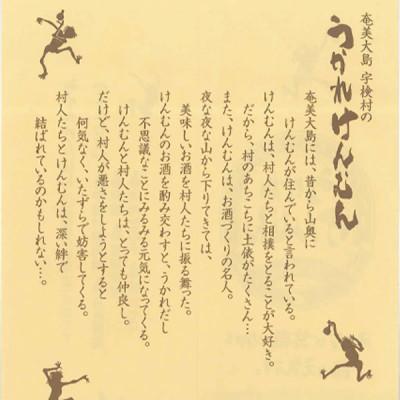 奄美大島 宇検村の
うかれけんむん
奄美大島には、昔から山奥に
けんむんが住んでいると言われている。
けんむんは、村人たちと相撲をとることが大好き。
だから、村のあちこちに土俵がたくさん…
また、けんむんは、お酒づくりの名人。
夜な夜な山から下りてきては、
美味しいお酒を村人たちに振る舞った。
けんむんのお酒を酌み交わすと、うかれだし
不思議なことにみるみる元気になってくる。
けんむんと村人たちは、とっても仲良し。
だけど、村人が悪さをしようとすると
何気なく、いたずらで妨害してくる。
村人たちとけんむんは、深い絆で
結ばれているのかもしれない…。